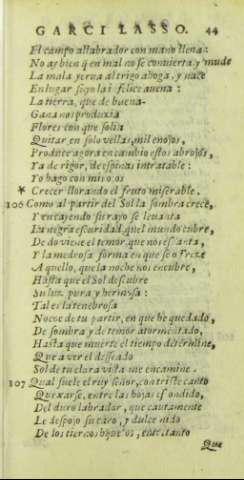 GARCI LASSO. 44
El campo al labrador con mano llena:
No ay bien q̃ en mal no se conuierta y mude
La mala yerua al trigo ahoga, y nace
En lugar suyo la i felice auena:
La tierra, que de buena-
Gana nos produzia
Flores con que solia
Quitar en solo vellas, mil enojos,
Produce agora en cambio estos abrojos,
Ya de rigor, de espinas intratable:
Yo hago con mis ojos
* Crecer llorando el fruto miserable.
106 Como al partir del Sol la sombra crece,
Y en cayendo su rayo se leuanta
La negra escuridad, que l mundo cubre,
De do viene el temor, que nos espanta,
Y la medrosa forma en que se ofrece
Aquello, que la noche nos encubre,
Hasta que el Sol descubre
Su luz pura y hermosa:
Tal es la tenebrosa
Noche de tu partir, en que he quedado,
De sombra y de temor atormentado,
Hasta que muerte el tiempo determine,
Que a ver el desseado
Sol de tu clara vista me encamine.
107 Qual suele el ruyseñor, con triste canto
Quexarse, entre las hojas escondido,
Del duro labrador, que cautamente
Le despojo su caro, y dulce nido
De los tiernos hijuelos, entretanto
Que